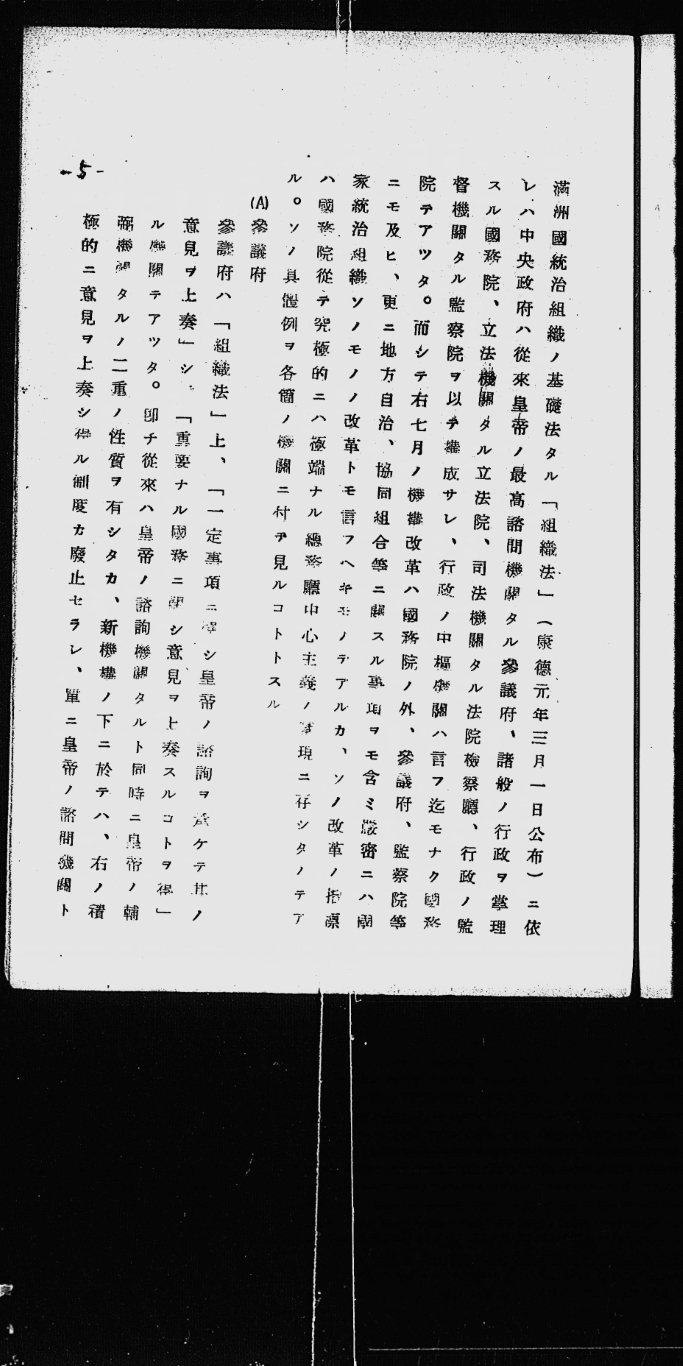 滿洲國統治組織ノ基礎法タル「組織法」（康德元年三月一日公布）ニ依
レハ中央政府ハ從來皇帝ノ最高諮問機關タル參議府、諸般ノ行政ヲ掌理
スル國務院、立法機關タル立法院、司法機關タル法院檢察廳、行政ノ監
督機關タル監察院ヲ以テ構成サレ、行政ノ中樞機關ハ言フ迄モナク國務
院テアツタ。而シテ右七月ノ機構改革ハ國務院ノ外、參議府、監察院等
ニモ及ヒ、更ニ地方自治、協同組合等ニ關スル事項ヲモ含ミ嚴密ニハ國
家統治組織ソノモノノ改革トモ言フヘキモノテアルカ、ソノ改革ノ指標
ハ國務院從テ究極的ニハ極端ナル總務廳中心主義ノ實現ニ存シタノテア
ル。ソノ具體例ヲ各個ノ機關ニ付テ見ルコトトスル
(A)參議府
參議府ハ「組織法」上、「一定事項ニ シ皇帝ノ諮詢ヲ承ケテ其ノ
意見ヲ上奏」シ、「重要ナル國務ニ關シ意見ヲ上奏スルコトヲ得」
ル機關テアツタ。卽チ從來ハ皇帝ノ諮詢機關タルト同時ニ皇帝ノ輔
弼機關タルノ二重ノ性質ヲ有シタカ、新機構ノ下ニ於テハ、右ノ積
極的ニ意見ヲ上奏シ得ル制度カ廢止セラレ、單ニ皇帝ノ諮問機關ト
-5-